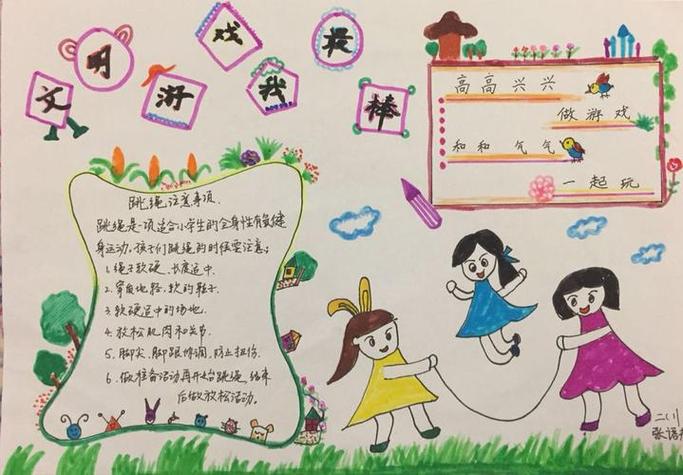 文明游戏我最棒
高高兴兴
做游戏
和和气气
一起玩
跳绳注意事项
跳绳是一项适合小学生的全身性有氧健
身运动，孩子们跳绳的时候要注意：
1. 绳子软硬、长度适中.
2. 穿质地轻、软的鞋子.
3. 软硬适中的场地.
4. 放松肌肉和关节.
5. 脚尖、脚跟协调，防止扭伤.
6. 做准备活动再开始跳绳，结束
后做放松活动。
二(1
张语